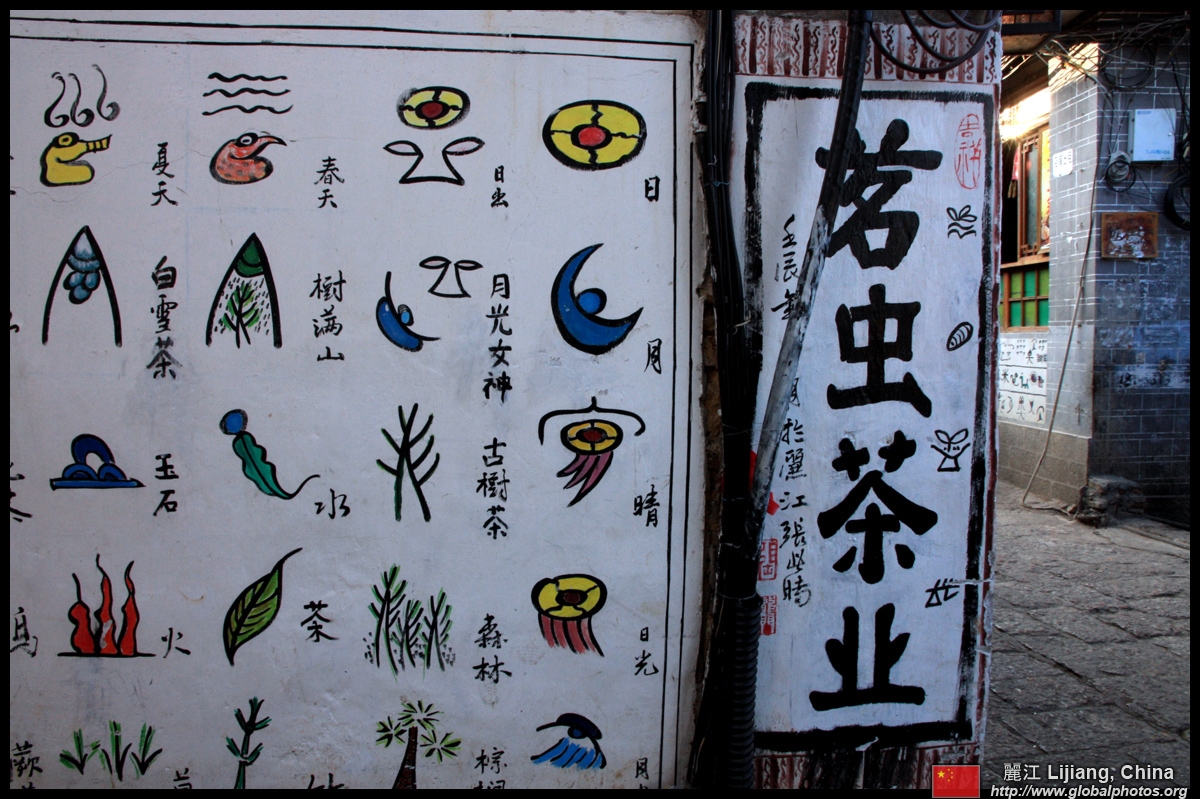 日
月
晴
日光
日出
月光女神
古樹茶
森林
春天
樹满山
水
茶
夏天
白雪茶
玉石
火
吉祥
茗虫茶业
壬辰
月於麗江張
晴
麗江 Lijiang, China
http://www.globalphotos.org